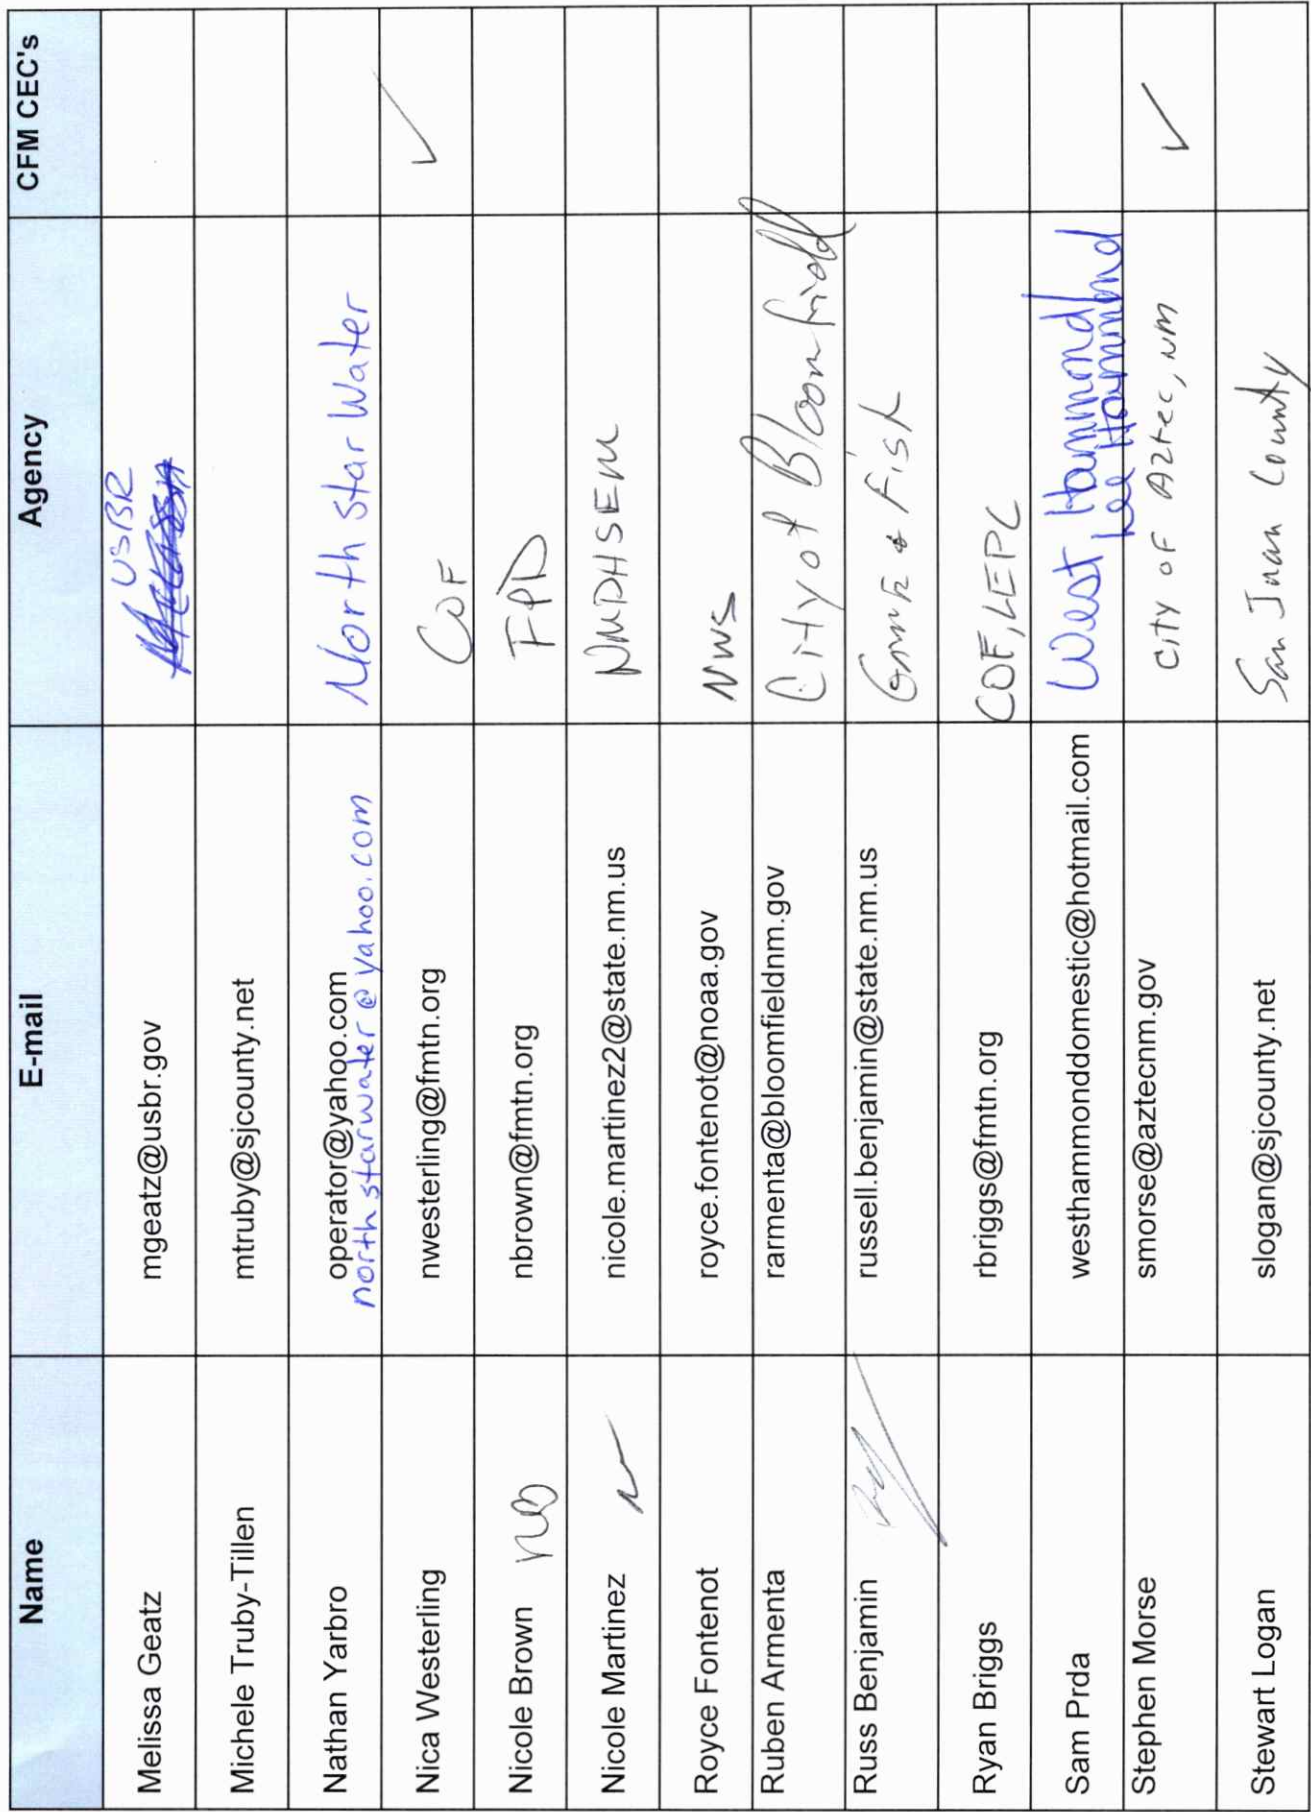 Name E-mail Agency CFM CEC's
Melissa Geatz mgeatz@usbr.gov USBR
Michele Truby-Tillen mtruby@sjcounty.net
Nathan Yarbro operator@yahoo.com North Star Water
northstarwater@yahoo.com
Nica Westerling nwesterling@fmtn.org COF ✓
Nicole Brown NB nbrown@fmtn.org FPD
Nicole Martinez nicole.martinez2@state.nm.us NMDHSEM
Royce Fontenot royce.fontenot@noaa.gov NWS
Ruben Armenta rarmenta@bloomfieldnm.gov City of Bloomfield
Russ Benjamin russell.benjamin@state.nm.us Game & Fish
Ryan Briggs rbriggs@fmtn.org COF, LEPC
Sam Prda westhammonddomestic@hotmail.com West Hammond
Lee Hammond
Stephen Morse smorse@aztecnm.gov City of Aztec, NM ✓
Stewart Logan slogan@sjcounty.net San Juan County